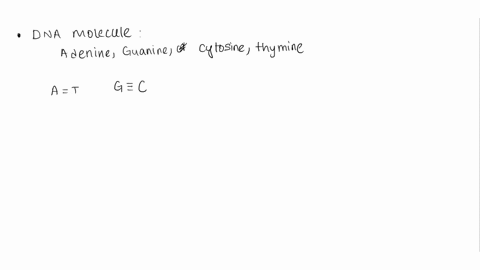 • DNA molecule :
Adenine, Guanine, cytosine, thymine
A = T G ≡ C